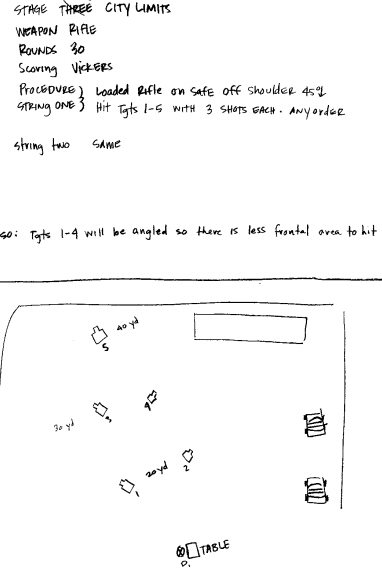 STAGE THREE CITY LIMITS
WEAPON RIFLE
ROUNDS 30
Scoring VICKERS
PROCEDURE} Loaded Rifle on Safe off Shoulder 45°↓
STRING ONE} Hit Tgts 1-5 WITH 3 SHOTS EACH. ANY order
string two same
so: Tgts 1-4 will be angled so there is less frontal area to hit
40 yd
5
4
30 yd
3
20 yd
2
1
TABLE